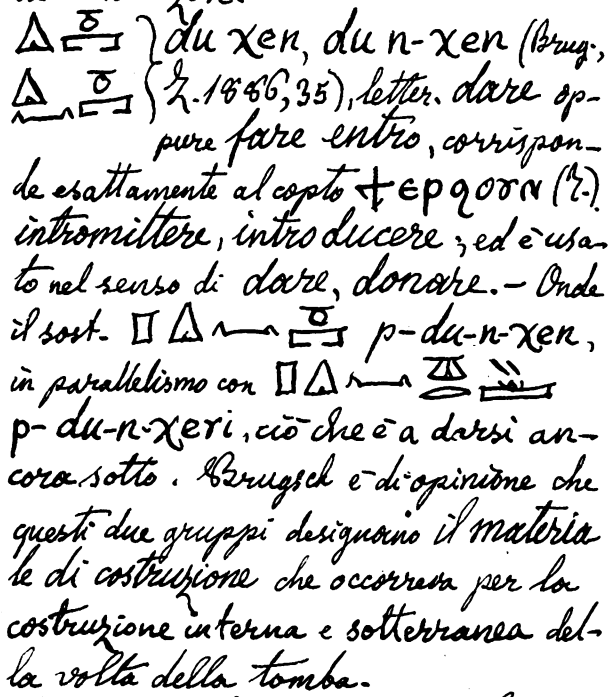 du χen, du n-χen (Brug.,
Z. 1886, 35), letter. dare op-
pure fare entro, corrispon-
de esattamente al copto ϯⲉⲣϩⲟⲩⲛ (?.)
intromittere, introducere; ed è usa-
to nel senso di dare, donare. – Onde
il sost. p-du-n-χen,
in parallelismo con
p-du-n-χeri, ciò che è a darsi an-
cora sotto. Brugsch è di opinione che
questi due gruppi designano il materia
le di costruzione che occorreva per la
costruzione interna e sotterranea del-
la volta della tomba.